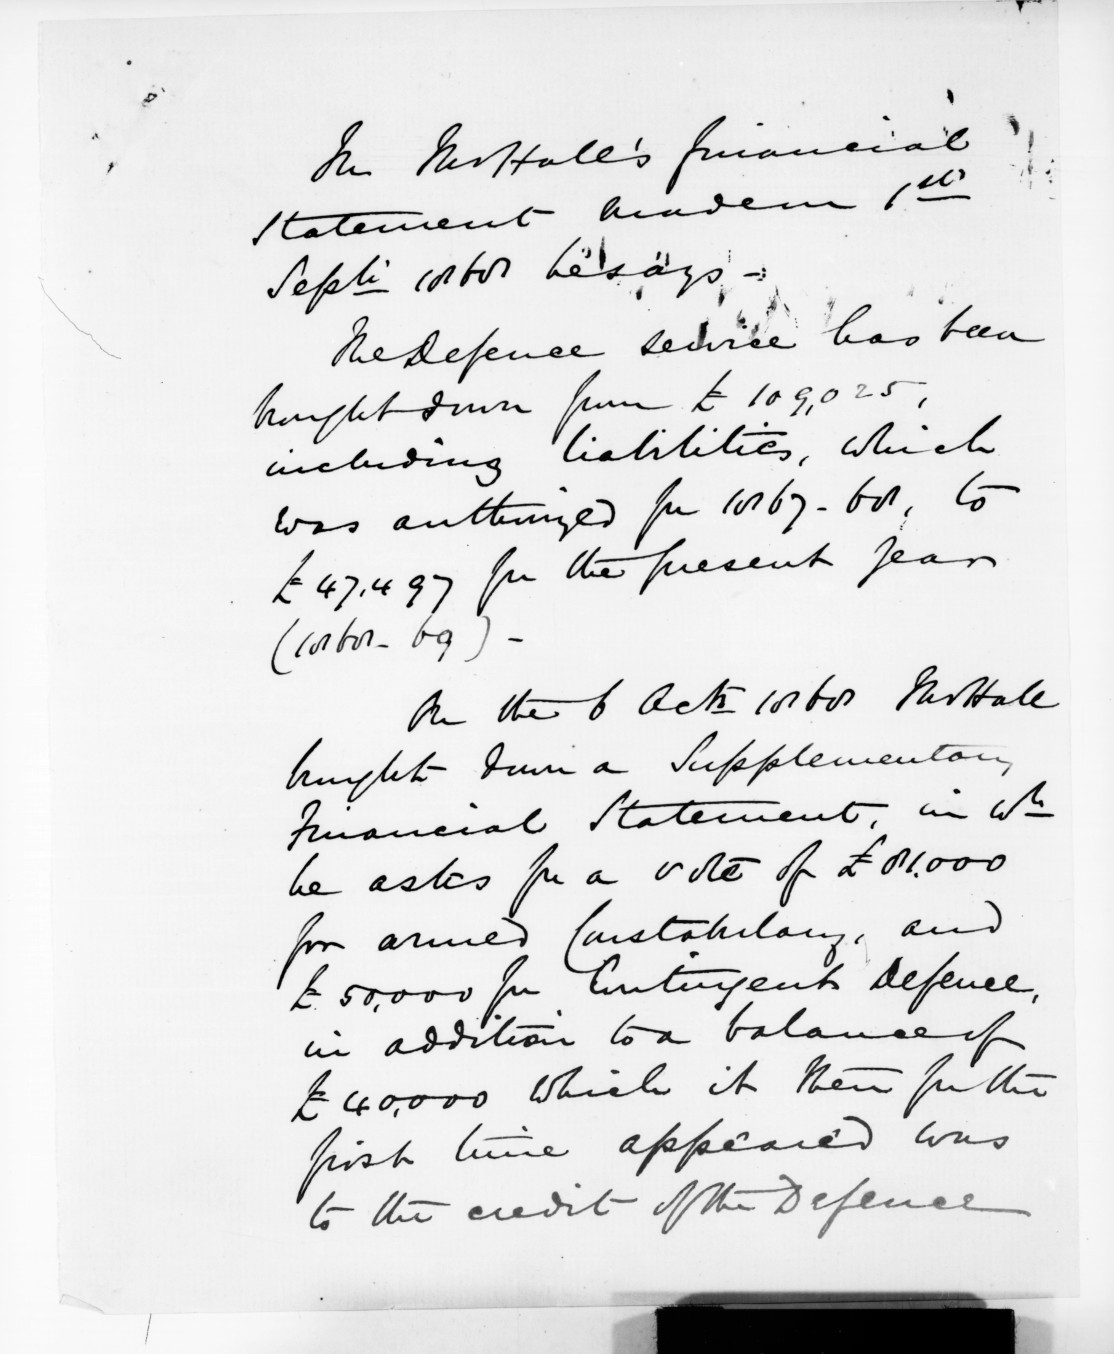 In Mr Hall's financial
Statement made on 1st
Septr 1868 he says -
The Defence service has been
brought down from £109,025,
including liabilities, which
was authorized for 1867-68, to
£47,497 for the present year
(1868-69) -
On the 6 Octr 1868 Mr Hall
brought down a Supplementary
Financial Statement, in wh
he asks for a vote of £81,000
for armed Constabulary, and
£50,000 for Contingent Defence,
in addition to a balance of
£40,000 which it then for the
first time appeared was
to the credit of the Defence